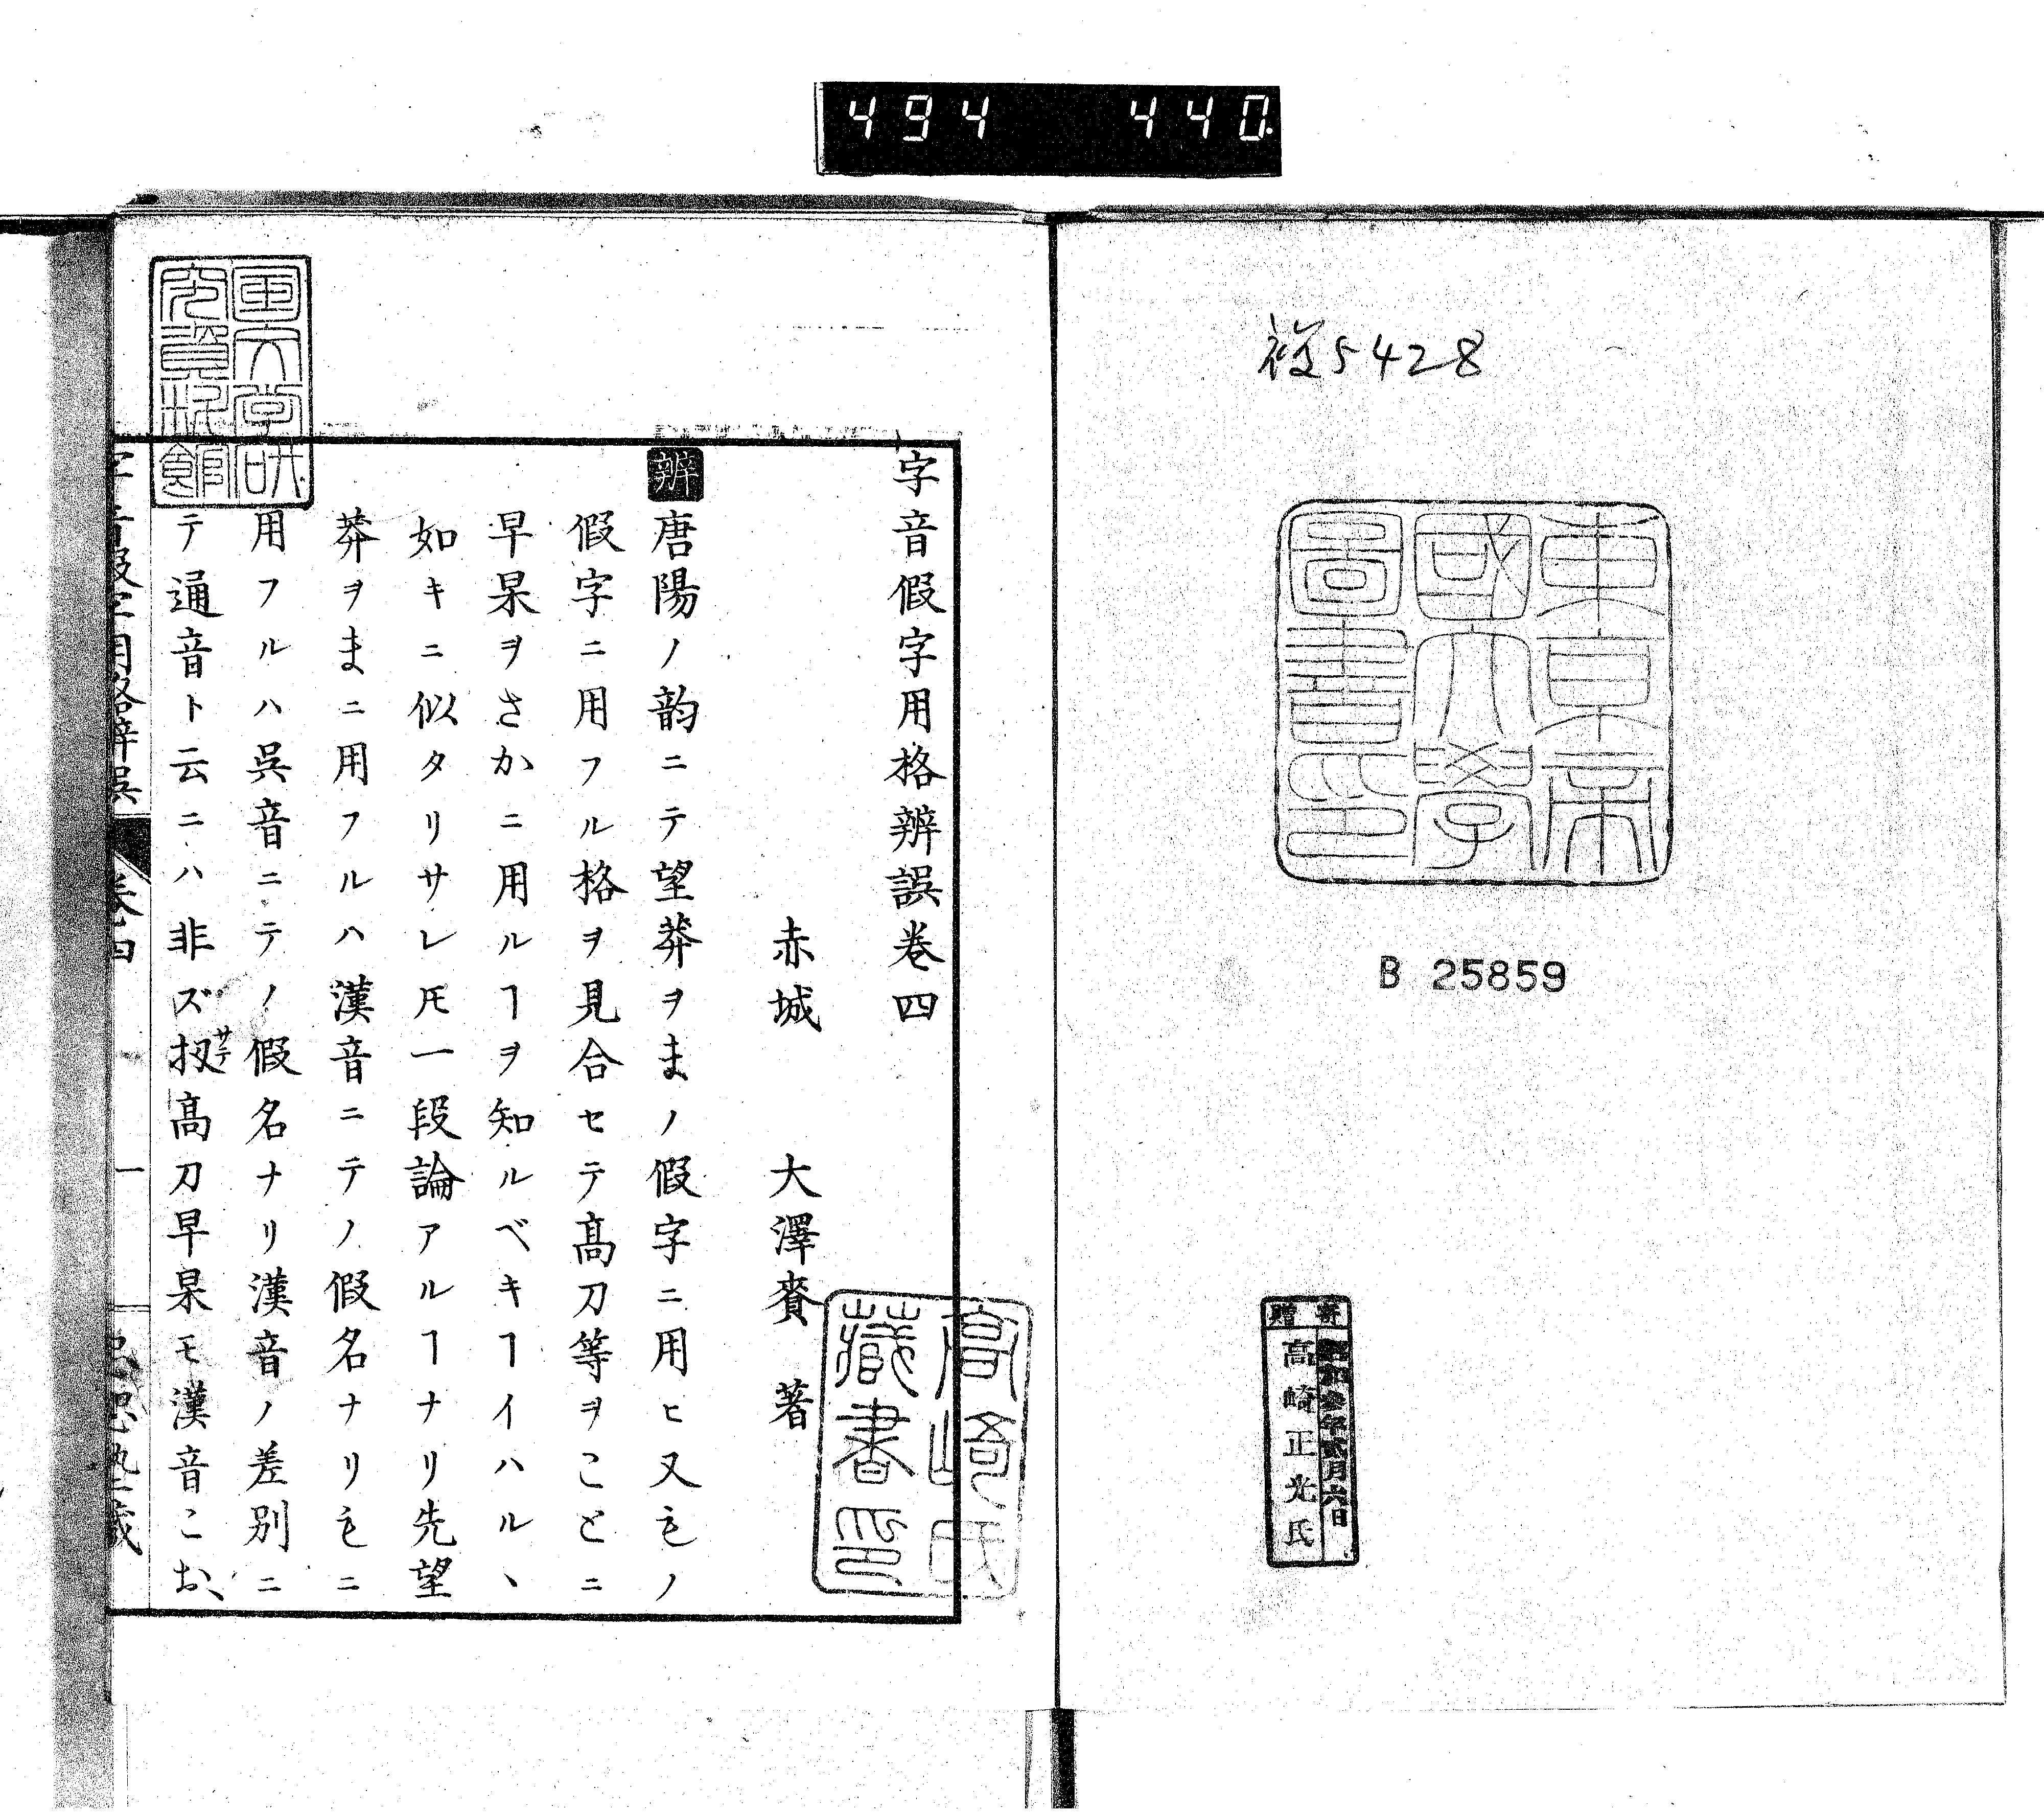 494 440
複5428
東京帝
國大學
圖書印
B 25859
寄贈
昭和参年貮月六日
高崎正光氏
字音假字用格辨誤卷四
赤城 大澤賚 著
高崎氏
藏書印
辨唐陽ノ韵ニテ望莽ヲまノ假字ニ用ヒ又もノ
假字ニ用フル格ヲ見合セテ高刀等ヲことニ
早杲ヲさかニ用ルヿヲ知ルベキヿイハルヽ
如キニ似タリサレ𪜈一段論アルヿナリ先望
莽ヲまニ用フルハ漢音ニテノ假名ナリもニ
用フルハ呉音ニテノ假名ナリ漢音ノ差別ニ
テ通音ト云ニハ非ズ扨サテ高刀早杲モ漢音こお、
国文学研
究資料館
字音假字用格辨誤 卷四 一